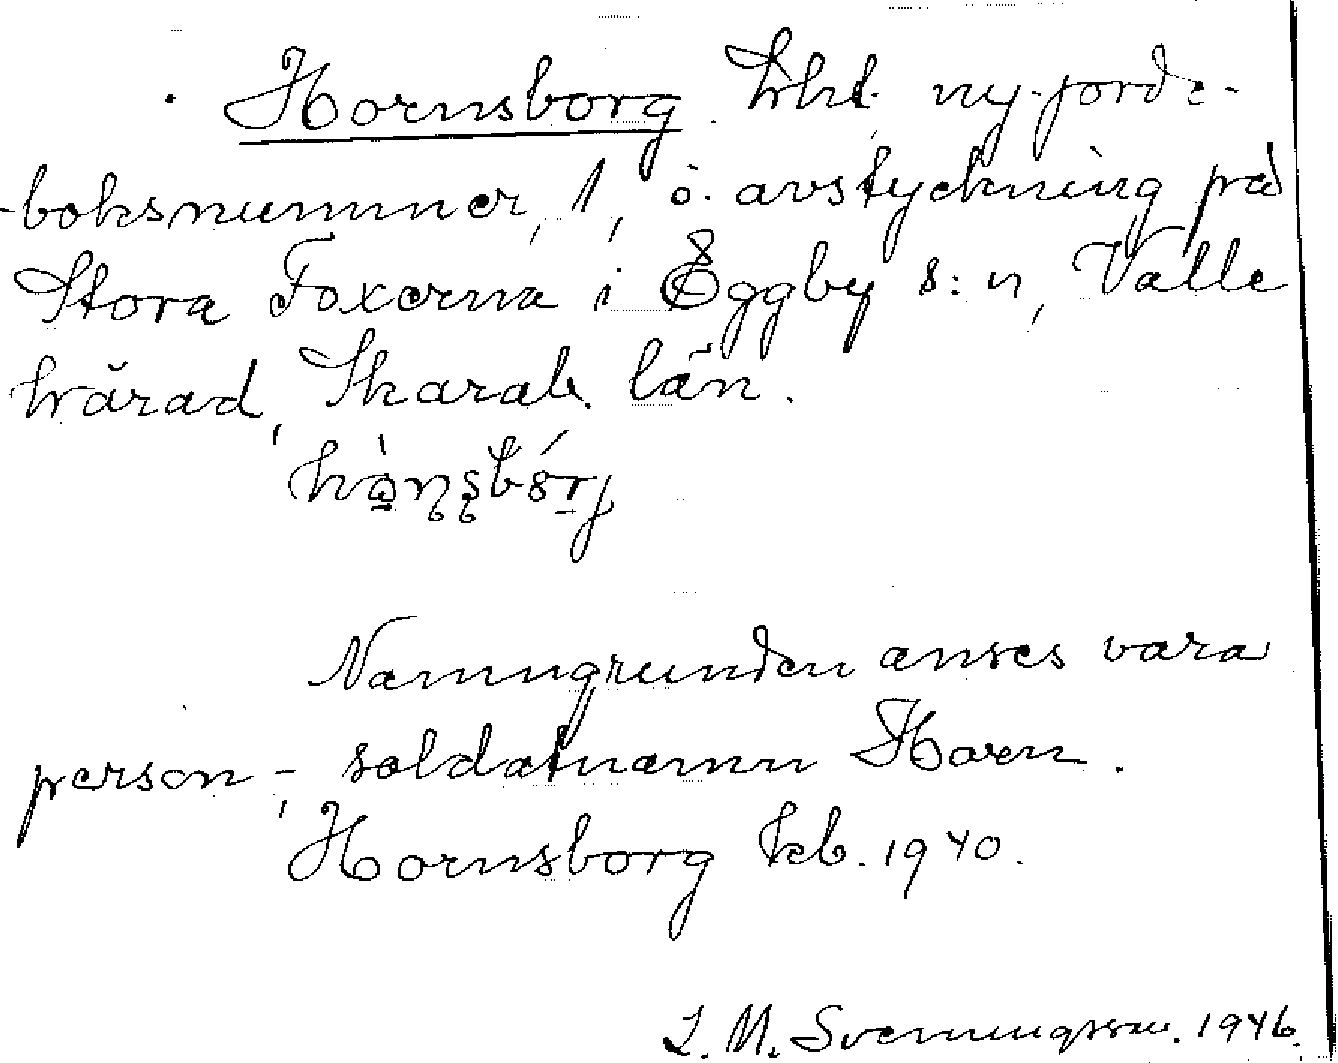 Hornsborg. Lht. ny-jorde-
-boksnummer, 1, ö. avstyckning på
Stora Foxerna i Eggby s:n, Valle
härad, Skarab. län.
Namngrunden anses vara
person-, soldatnamn Horn.
Hornsborg kb. 1940.
L. M. Svenungsson. 1946.